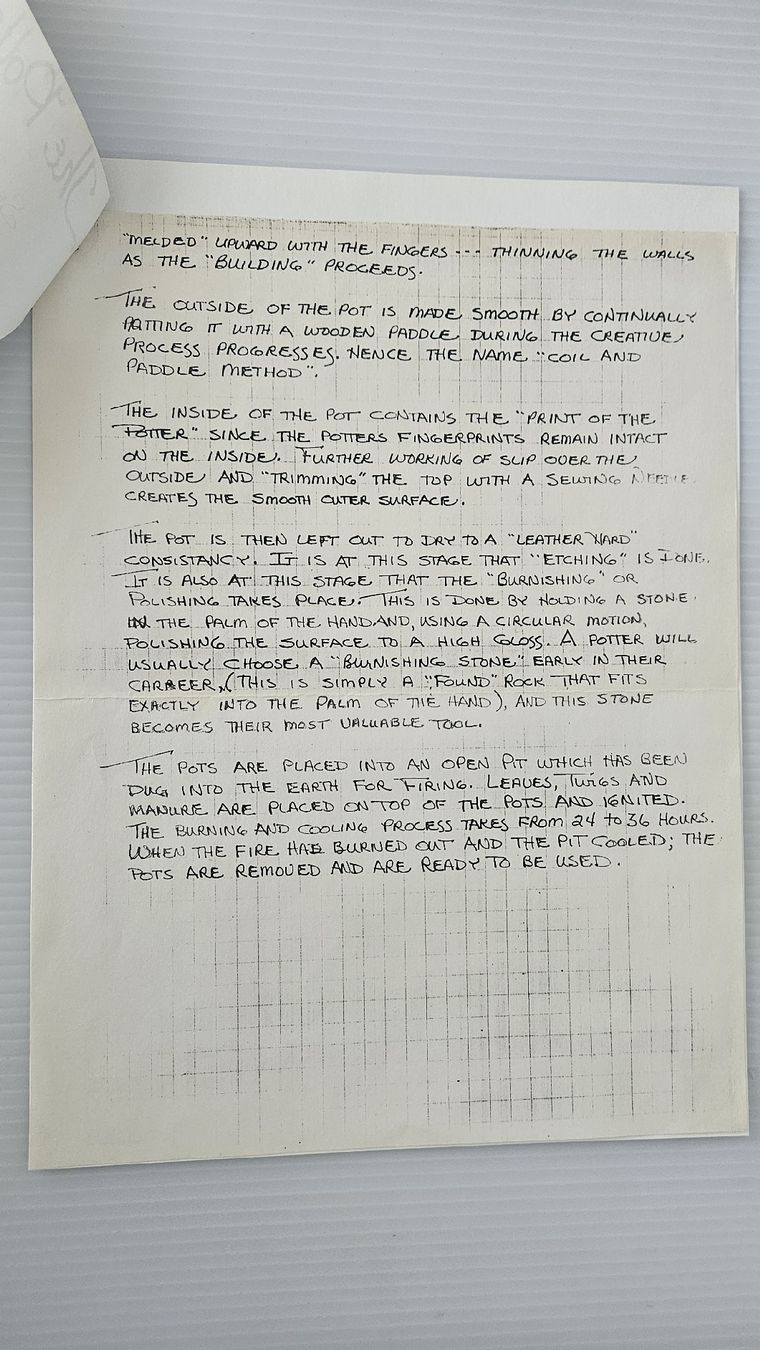 "MELDED" UPWARD WITH THE FINGERS --- THINNING THE WALLS
AS THE "BUILDING" PROCEEDS.
THE OUTSIDE OF THE POT IS MADE SMOOTH BY CONTINUALLY
PATTING IT WITH A WOODEN PADDLE DURING THE CREATIVE
PROCESS PROGRESSES. HENCE THE NAME "COIL AND
PADDLE METHOD".
THE INSIDE OF THE POT CONTAINS THE "PRINT OF THE
POTTER" SINCE THE POTTERS FINGERPRINTS REMAIN INTACT
ON THE INSIDE. FURTHER WORKING OF SLIP OVER THE
OUTSIDE AND "TRIMMING" THE TOP WITH A SEWING NEEDLE
CREATES THE SMOOTH OUTER SURFACE.
THE POT IS THEN LEFT OUT TO DRY TO A "LEATHER HARD"
CONSISTANCY. IT IS AT THIS STAGE THAT "ETCHING" IS DONE.
IT IS ALSO AT THIS STAGE THAT THE "BURNISHING" OR
POLISHING TAKES PLACE. THIS IS DONE BY HOLDING A STONE
IN THE PALM OF THE HAND AND, USING A CIRCULAR MOTION,
POLISHING THE SURFACE TO A HIGH GLOSS. A POTTER WILL
USUALLY CHOOSE A "BURNISHING STONE" EARLY IN THEIR
CAREER, (THIS IS SIMPLY A "FOUND" ROCK THAT FITS
EXACTLY INTO THE PALM OF THE HAND), AND THIS STONE
BECOMES THEIR MOST VALUABLE TOOL.
THE POTS ARE PLACED INTO AN OPEN PIT WHICH HAS BEEN
DUG INTO THE EARTH FOR FIRING. LEAVES, TWIGS AND
MANURE ARE PLACED ON TOP OF THE POTS AND IGNITED.
THE BURNING AND COOLING PROCESS TAKES FROM 24 to 36 HOURS.
WHEN THE FIRE HAS BURNED OUT AND THE PIT COOLED; THE
POTS ARE REMOVED AND ARE READY TO BE USED.
The